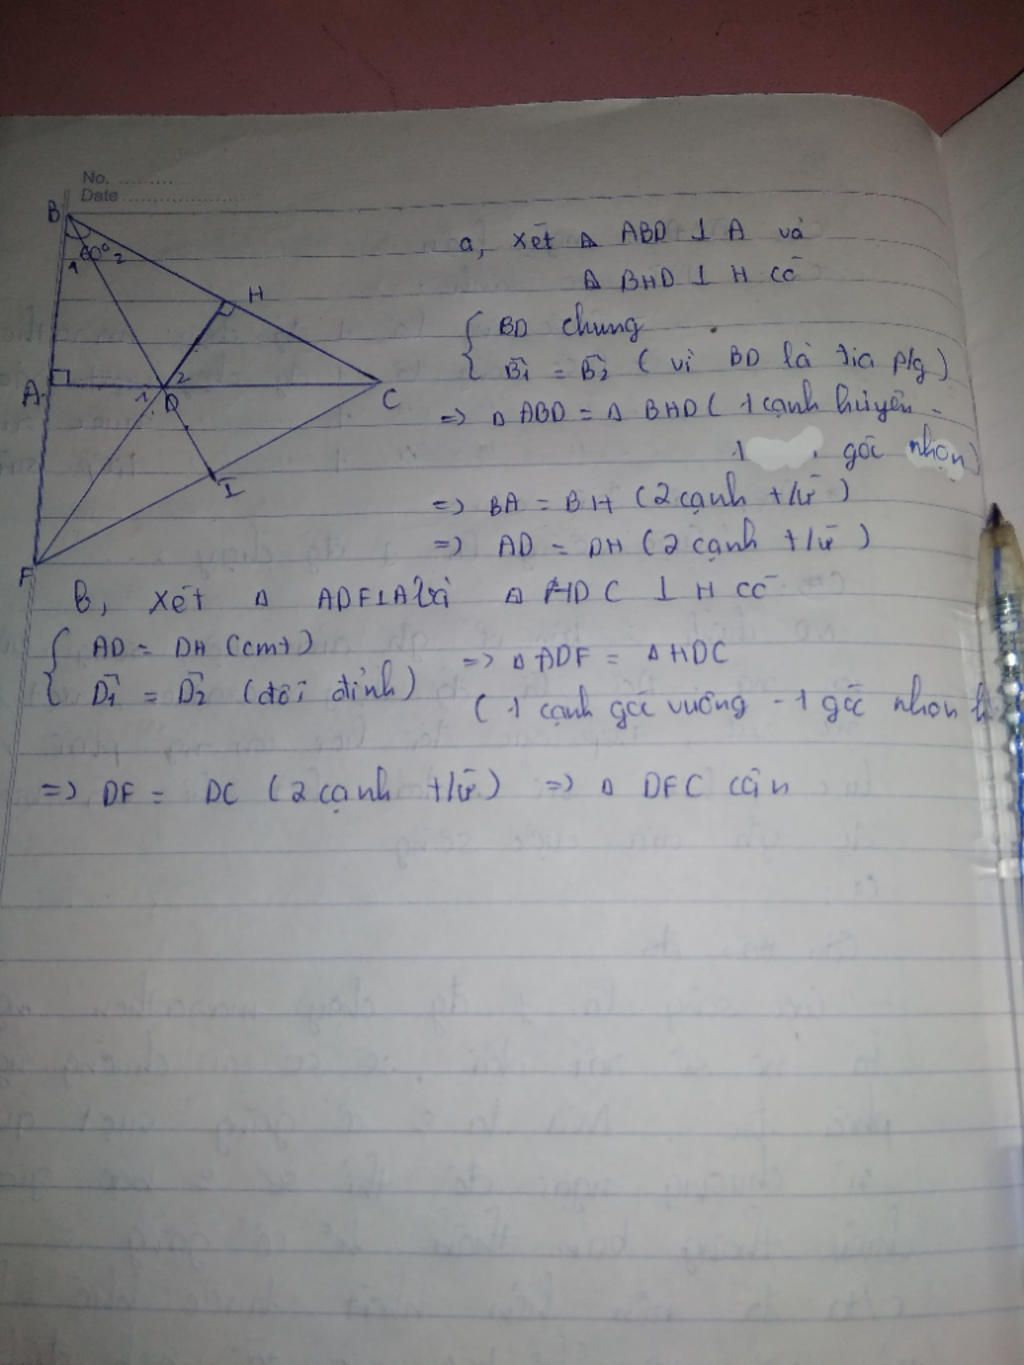 No. ..........
Date ......................
B
60°
1
2
H
A
1
2
D
C
I
F
a, Xét Δ ABD ⊥ A và
Δ BHD ⊥ H có
{ BD chung
B̂1 = B̂2 ( vì BD là tia p/g )
=> Δ ABD = Δ BHD ( 1 cạnh huyền -
1 góc nhọn )
=> BA = BH ( 2 cạnh t/ứ )
=> AD = DH ( 2 cạnh t/ứ )
B, Xét Δ ADF ⊥ A và Δ HDC ⊥ H có
{ AD = DH (cmt)
D̂1 = D̂2 (đối đỉnh)
=> Δ ADF = Δ HDC
( 1 cạnh góc vuông - 1 góc nhọn
=> DF = DC ( 2 cạnh t/ứ ) => Δ DFC cân